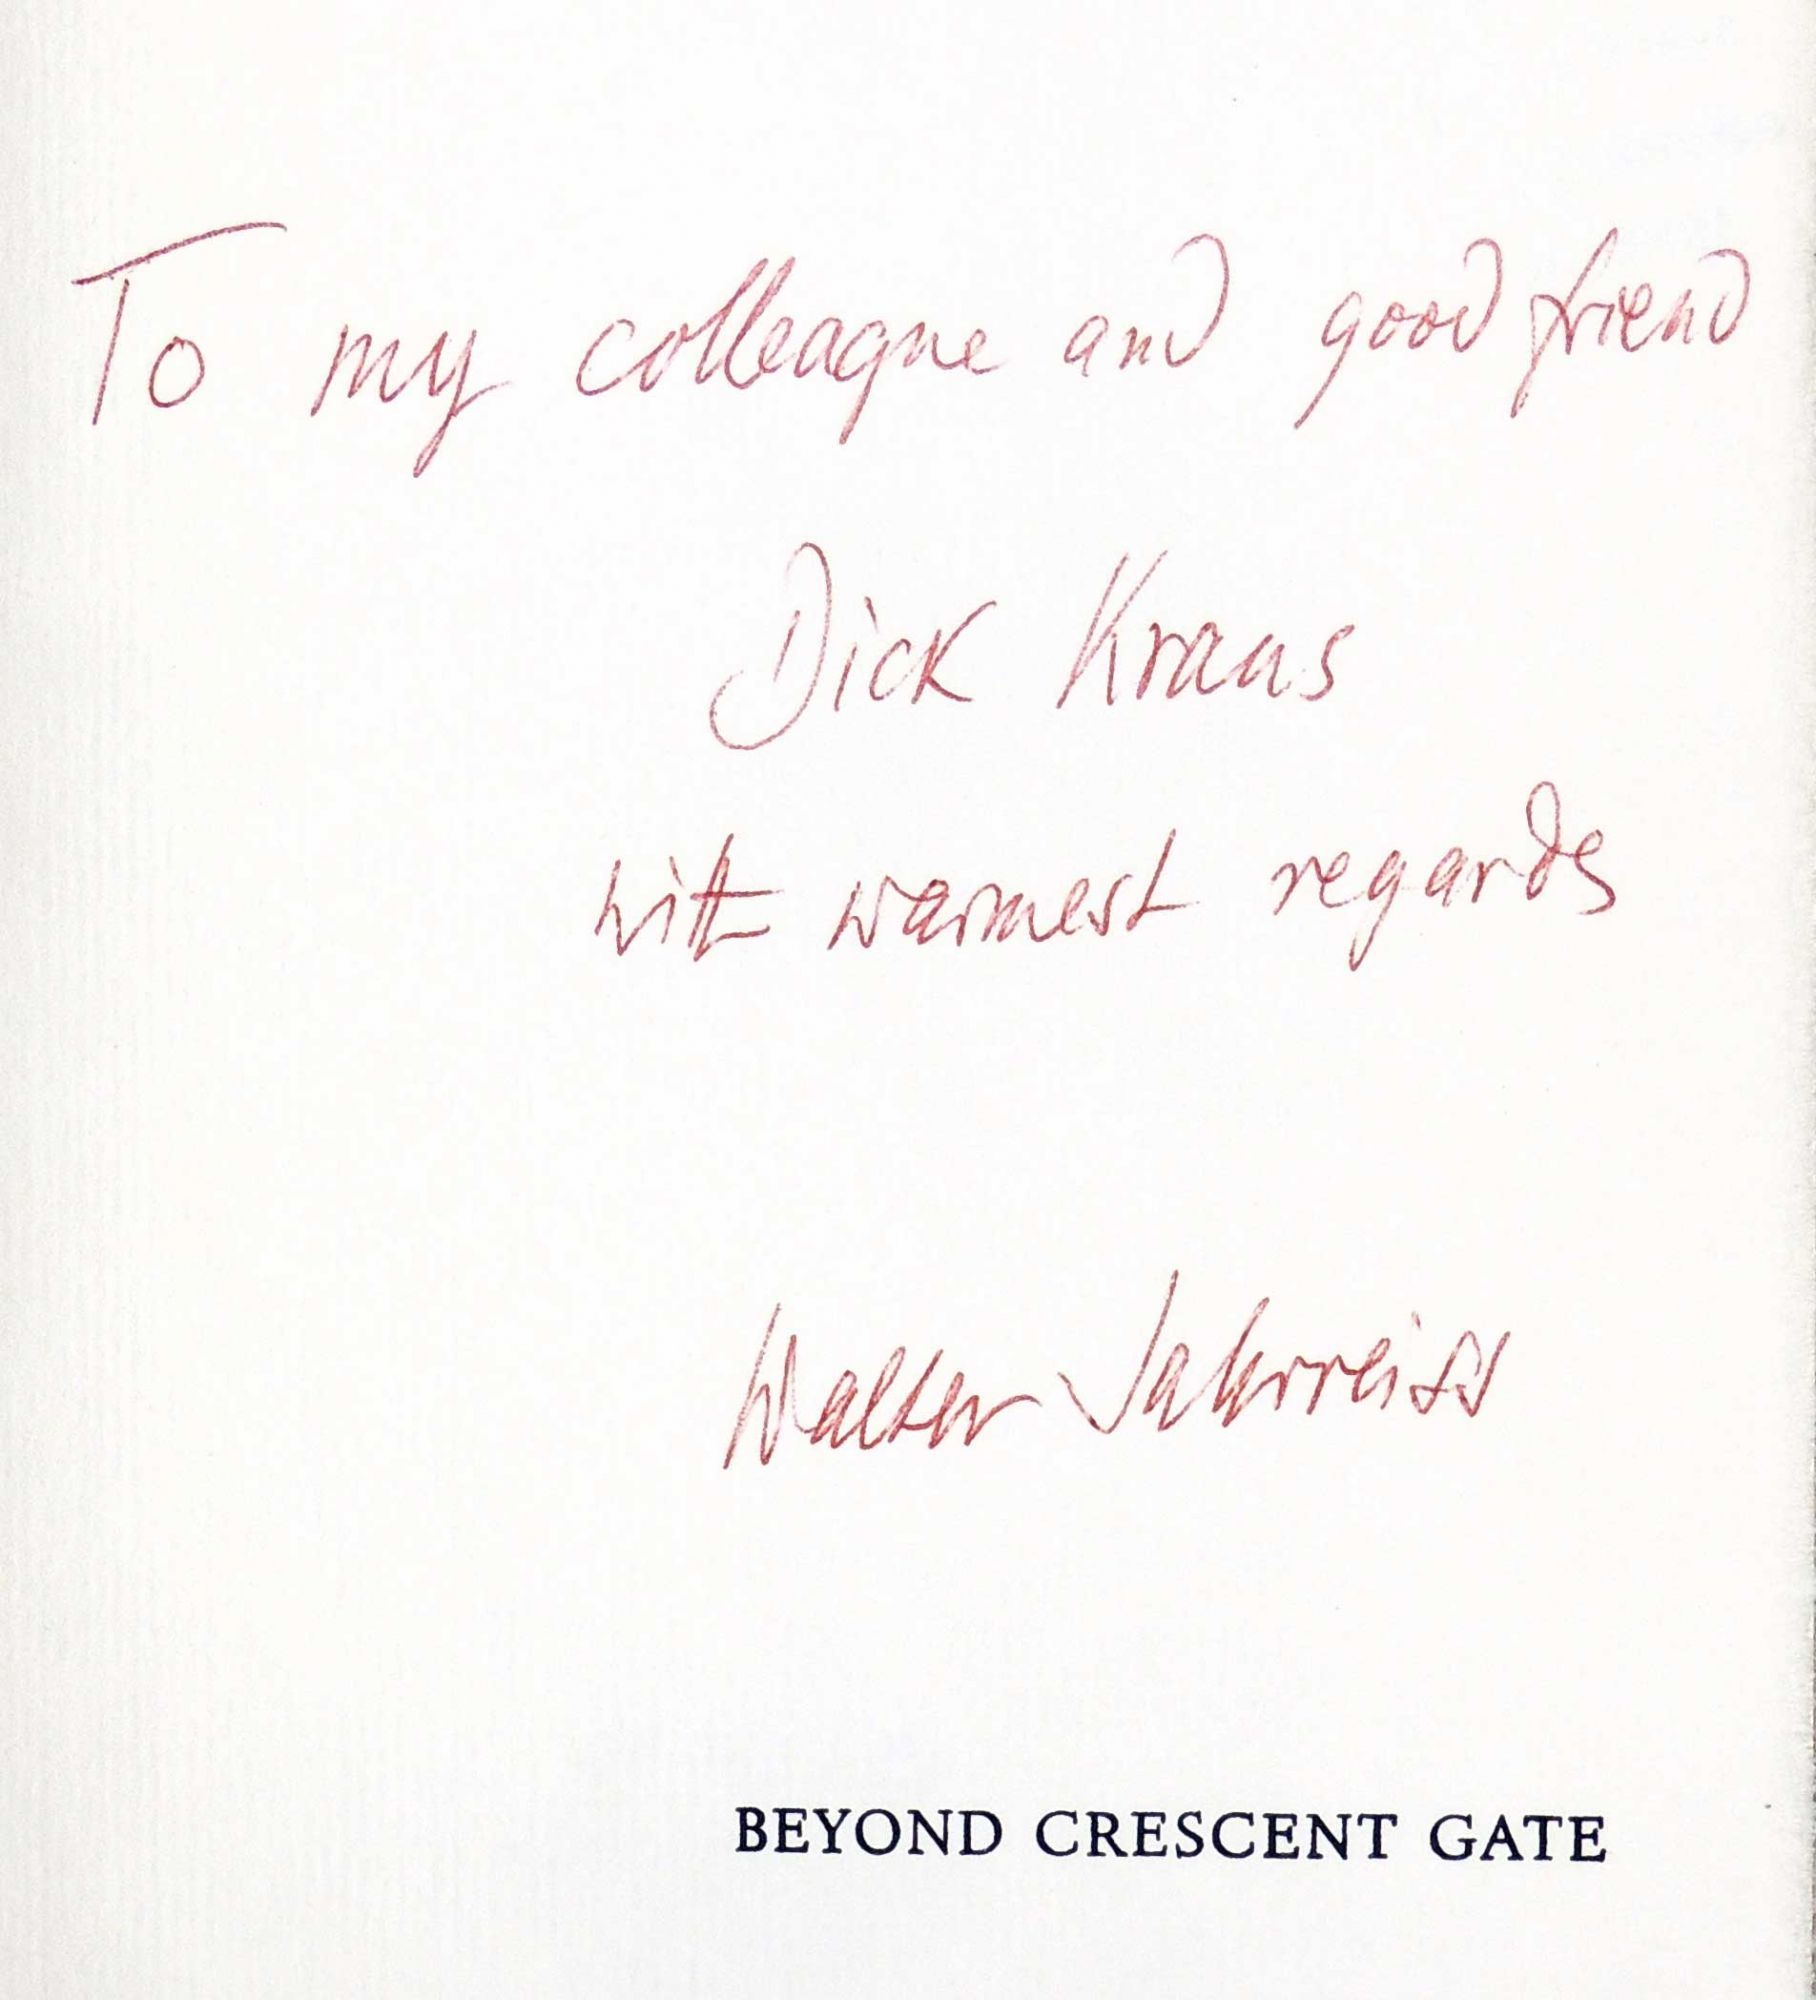 To my colleague and good friend
Dick Kraus
with warmest regards
Walter Jahrreiss
BEYOND CRESCENT GATE